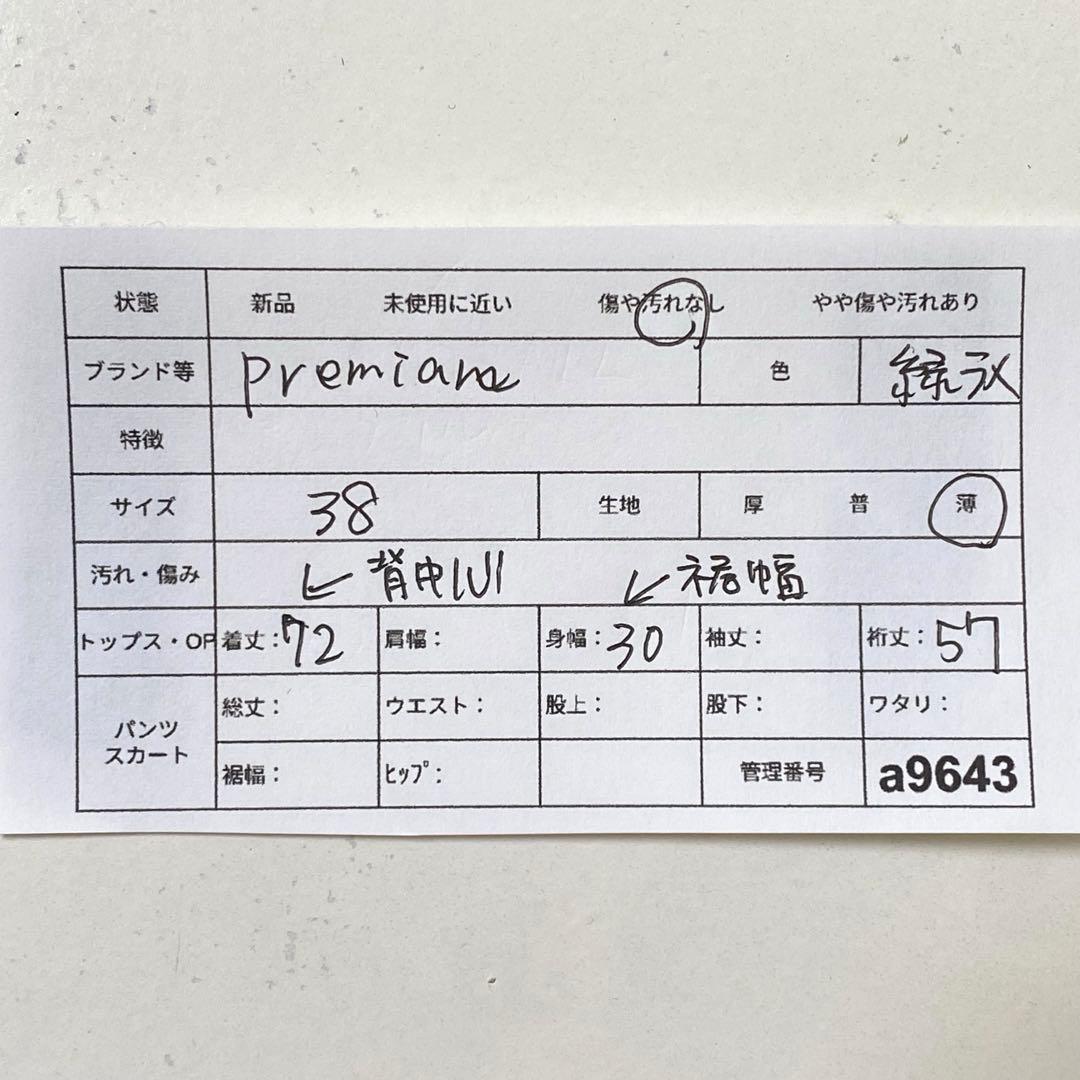 状態 新品 未使用に近い 傷や汚れなし やや傷や汚れあり
ブランド等 premiana 色 緑
特徴
サイズ 38 生地 厚 普 薄
汚れ・傷み ↙背中 ↙裾幅
トップス・OP 着丈:72 肩幅: 身幅:30 袖丈: 裄丈:57
パンツ スカート 総丈: ウエスト: 股上: 股下: ワタリ:
裾幅: ヒップ: 管理番号 a9643